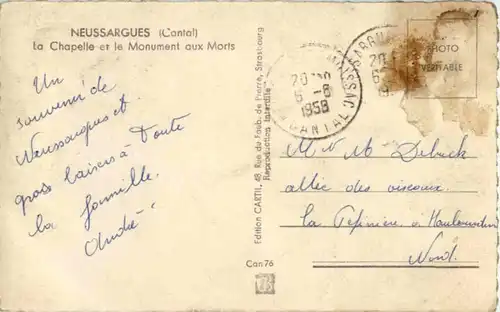 NEUSSARGUES (Cantal)
La Chapelle et le Monument aux Morts
Un
souvenir de
Neussargues et
gros baisers à toute
la famille.
André
Edition CARTIL, 48, Rue du Faub.-de-Pierre, Strasbourg
Reproduction Interdite
Can 76
20
6 - 8
1958
CANTAL
PHOTO
VÉRITABLE
M M Debuck
allée des oiseaux
la Pépinière
Nord.